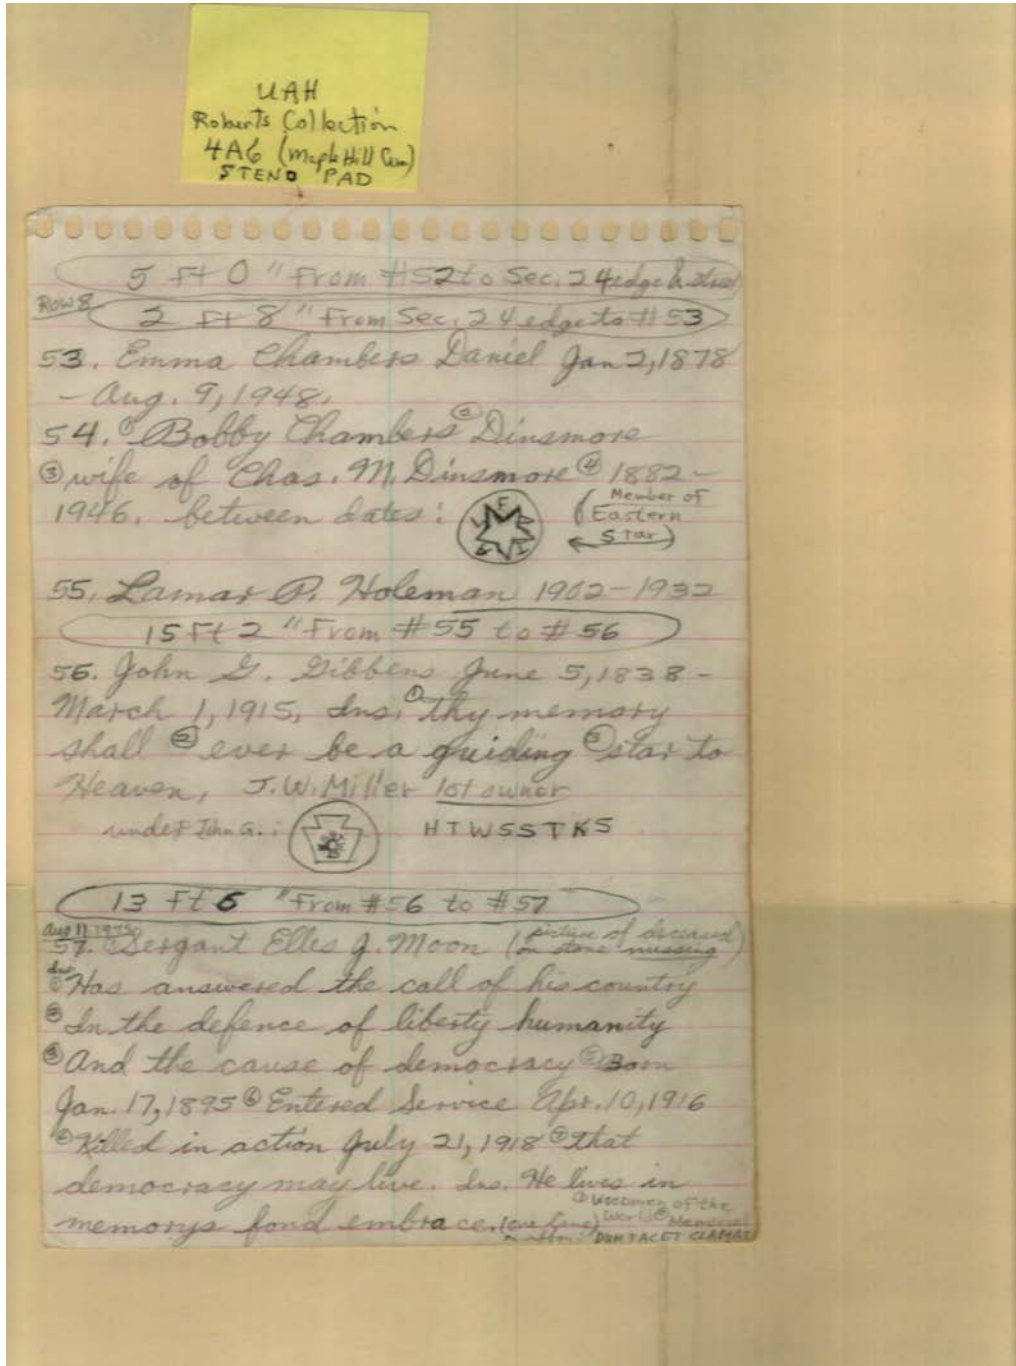 UAH
Roberts Collection
4A6 (Maple Hill Cem)
STENO PAD
5 Ft 0" From #52 to Sec. 24 edge
Row 8
2 Ft 8" From Sec. 24 edge to #53
53. Emma Chambers Daniel Jan 2, 1878
- Aug. 9, 1948.
54. ① Bobby Chambers ② Dinsmore
③ wife of Chas. M. Dinsmore ④ 1882-
1946. between dates:
(Member of
Eastern
Star)
55. Lamar P. Holeman 1902-1932
15 Ft 2" From #55 to #56
56. John G. Gibbens June 5, 1838 -
March 1, 1915, Ins. ① Thy memory
shall ② ever be a guiding ③ star to
Heaven, J.W. Miller lot owner
under John G.: HTWSSTKS
13 Ft 6" From #56 to #57
Aug 11, 1975
57. Sergant Elles J. Moon (picture of deceased
on stone missing)
Ins. ① Has answered the call of his country
② In the defence of liberty humanity
③ And the cause of democracy ⑤ Born
Jan. 17, 1895 ⑥ Entered Service Apr. 10, 1916
⑥ Killed in action July 21, 1918 ⑦ That
democracy may live. Ins. He lives in
memorys fond embrace.
① Woodmen of the
World ② Memorial
DUM TACET CLAMAT